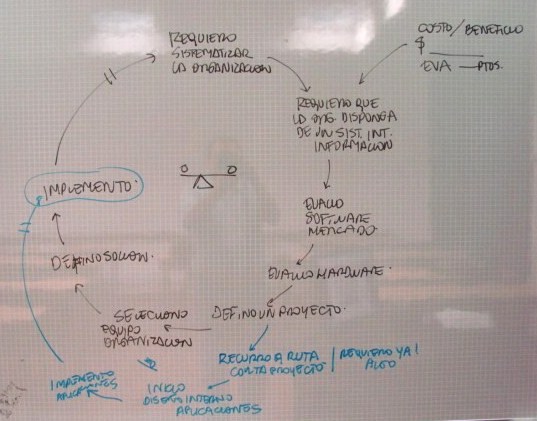 REQUIERO
SISTEMATIZAR
LA ORGANIZACION
COSTO/BENEFICIO
$
EVA — PTOS.
REQUIERO QUE
LA ORG. DISPONGA
DE UN SIST. INT.
INFORMACION
IMPLEMENTO.
EVALUO
SOFTWARE
MERCADO.
DEFINO SOLUCION.
EVALUO HARDWARE.
DEFINO UN PROYECTO.
SELECCIONO
EQUIPO
ORGANIZACION
RECURRO A RUTA
CORTA PROYECTO
REQUIERO YA!
ALGO
IMPLEMENTO
APLICACIONES
INICIO
DISEÑO INTERNO
APLICACIONES